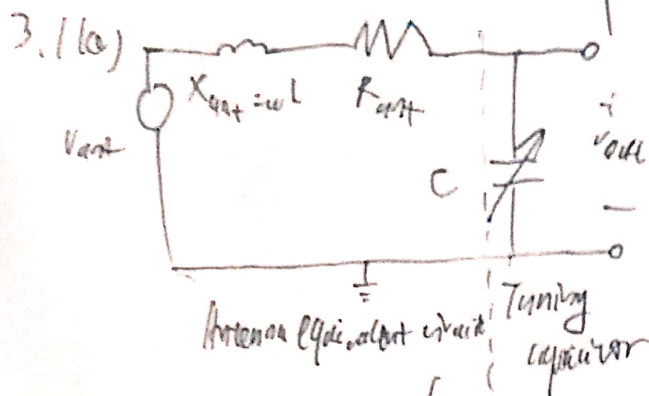 3.1(a)
Xant = ωL
Rant
Vant
+
Vout
C
-
Antenna equivalent circuit
Tuning
capacitor